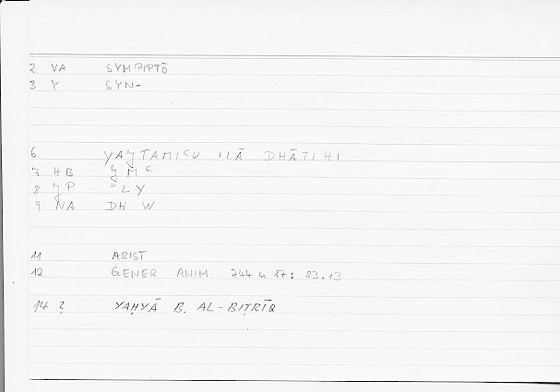 2 VA SYMPIPTŌ
3 Y SYN-
6 YAǦTAMICU ILĀ DHĀTIHI
7 HB ǦMC
8 ǦP ʾLY
9 NA DHW
11 ARIST
12 GENER ANIM 744 a 17: 83.13
14 ? YAḤYĀ B. AL-BIṬRĪQ